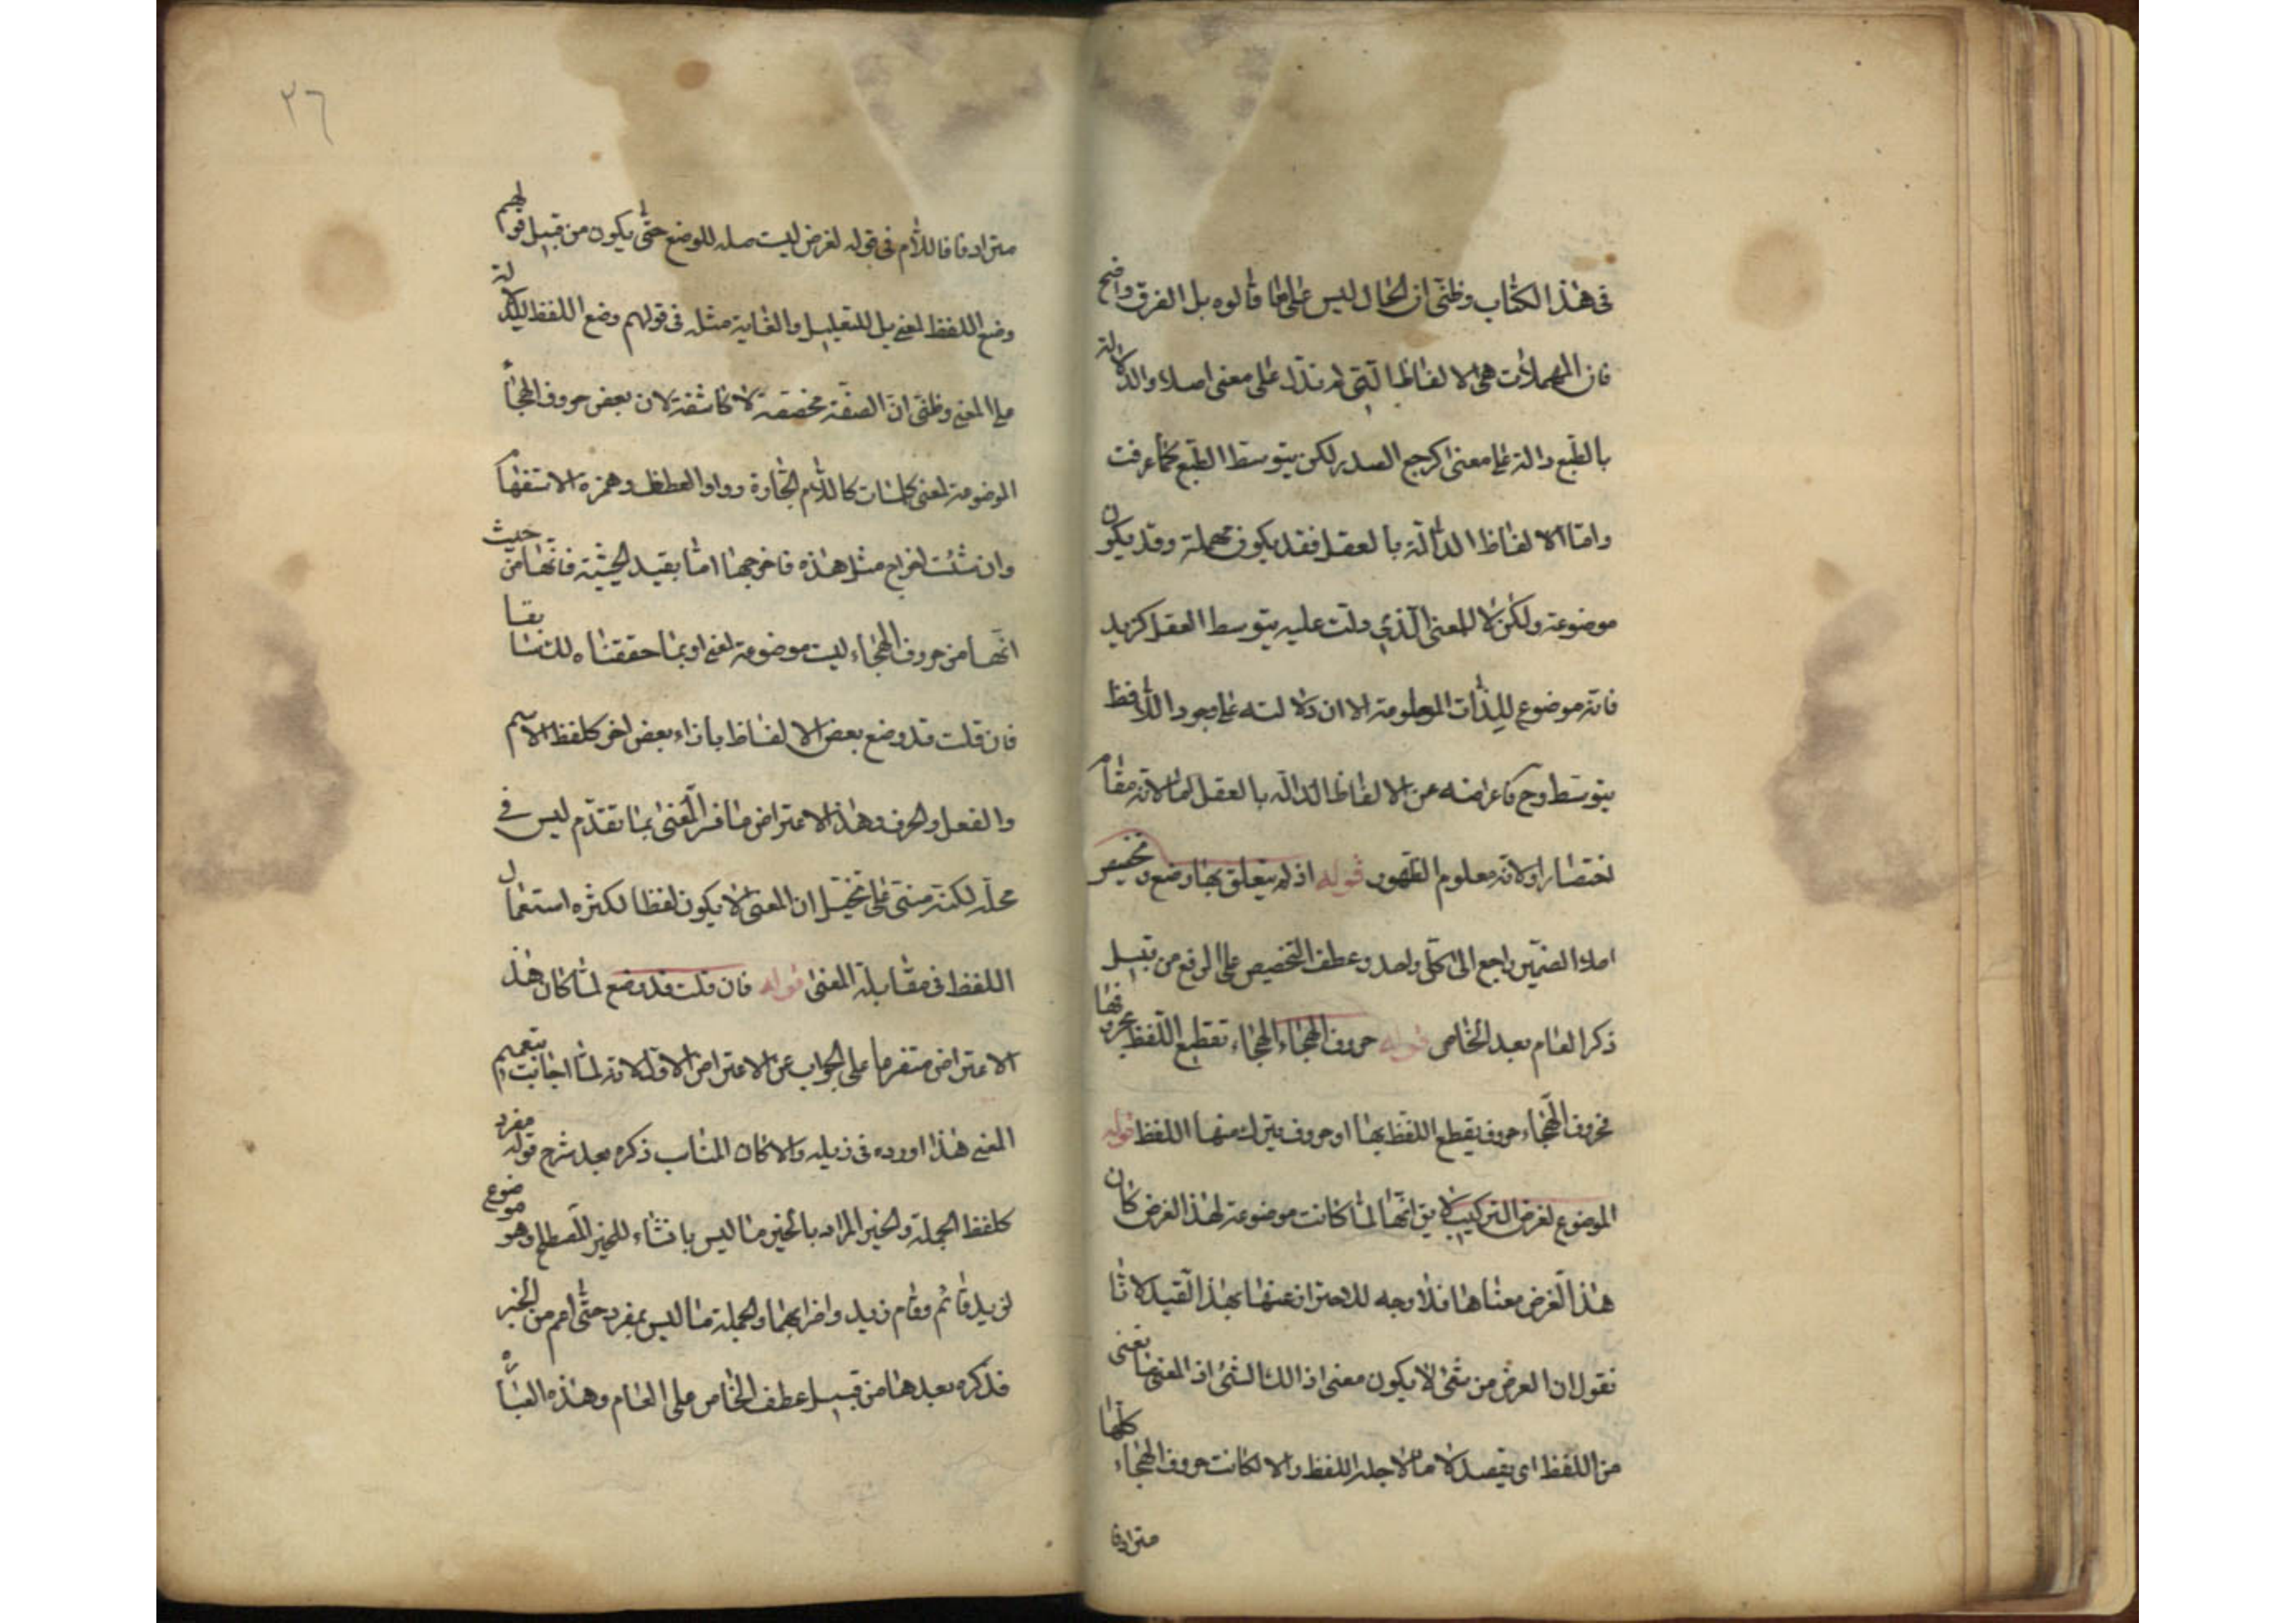 فى هذا الكتاب وظنى ان الحال ليس على ما قالوه بل الفرق واضح
فان المهملات هى الالفاظ التى لم تدل على معنى اصلا والدلالة
بالطبع دالة على معنى اكرجع الصدر لكن بتوسط الطبع كما عرفت
واما الالفاظ الدالة بالعقل فقد يكون مهملة وقد يكون
موضوعة ولكن لا للمعنى الذى دلت عليه بتوسط العقل كزيد
فانه موضوع للذات المعلومة الا ان دلالته على وجود اللافظ
بتوسط وح فاعراضه عن الالفاظ الدالة بالعقل اما لانه مقام
اختصار او لانه معلوم الظهور قوله اذ لم يتعلق بها وضع وتخصيص
اصلا الضمير راجع الى كل واحد وعطف التخصيص على الوضع من قبيل
ذكر العام بعد الخاص قوله حروف الهجاء الهجاء تقطيع اللفظ بحروفها
فحروف الهجاء حروف يقطع اللفظ بها او حروف يترك منها اللفظ قوله
الموضوع لغرض التركيب لا يق انها لما كانت موضوعة لهذا الغرض كان
هذا الغرض معناها فلا وجه للاحتراز عنها بهذا القيد لانا
نقول ان الغرض من شئ لا يكون معنى اذالك الشئ اذ المعنى ما يعنى
من اللفظ اى يقصد لا ما لاجله اللفظ والا لكانت حروف الهجاء كلها
مترادفا
٣٦
مترادفا فاللام فى قوله لغرض ليست صلة للوضع حتى يكون من قبيل قولهم
وضع اللفظ لمعنى بل للتعليل والغاية مثله فى قولهم وضع اللفظ للدلالة
على المعنى وظنى ان الصفة مخصصة لا كاشفة لان بعض حروف الهجاء
الموضوعة لمعنى كلمات كاللام الجارة وواو العطف وهمزه الاستفهام
وان شئت اخراج مثل هذه فاخرجها اما بقيد الحيثية فانها من حيث
انها من حروف الهجاء ليست موضوعة لمعنى او بما حققناه لك سابقا
فان قلت قد وضع بعض الالفاظ بازاء بعض اخر كلفظ الاسم
والفعل والحرف وهذا الاعتراض مع ما فسر المعنى بما تقدم ليس فى
محله لكنه مبنى على تخيل ان المعنى لا يكون لفظا لكثره استعمال
اللفظ فى مقابلة المعنى قوله فان قلت قد وضع لما كان هذا
الاعتراض متفرعا على الجواب عن الاعتراض الاول لانه لما اجاب بتعميم
المعنى هذا اورده فى ذيله والا كان المناسب ذكره بعد شرح قوله مفرد
كلفظ الجملة والخبر المراد بالخبر ما ليس بانشاء للخبر المصطلح وهو موضوع
لزيد قائم وقام زيد واضرابهما والجملة ما ليس بمفرد حتى اعم من الخبر
فذكره بعدها من قبيل عطف الخاص على العام وهذه العباره